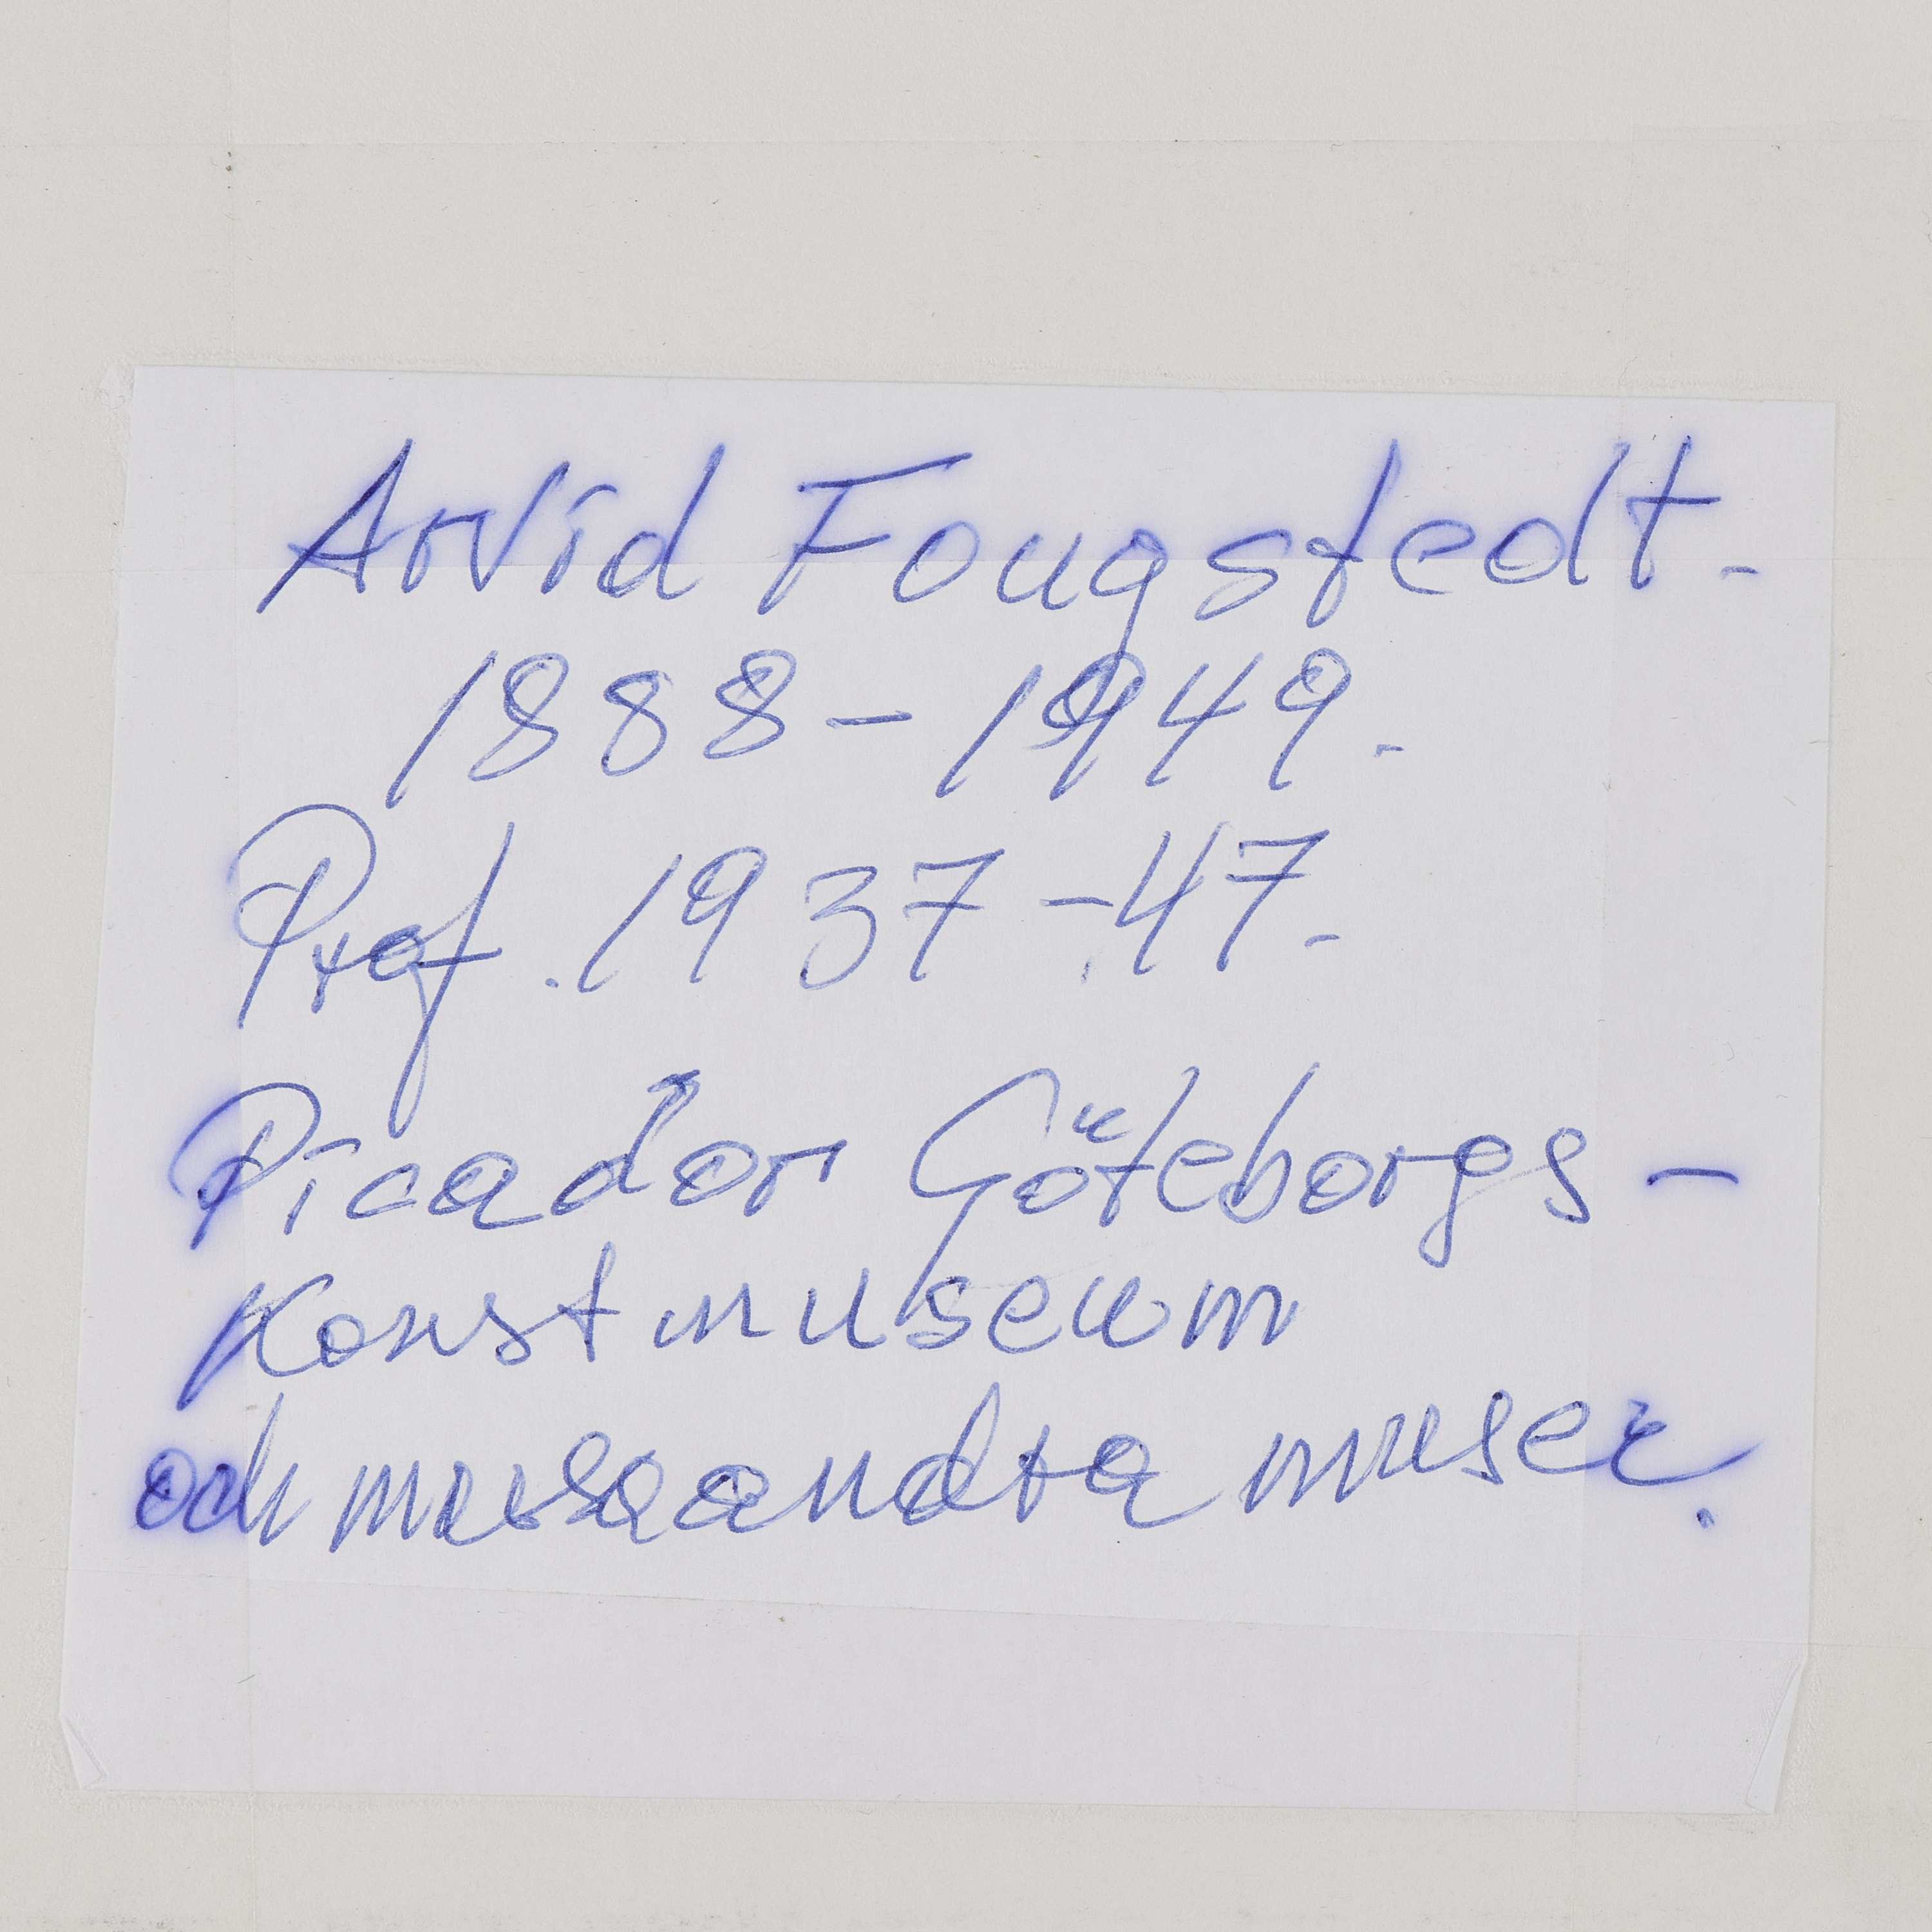 Arvid Fougstedt.
1888-1949.
Prof. 1937-47.
Picador Göteborgs-
Konstmuseum
och andra museer.